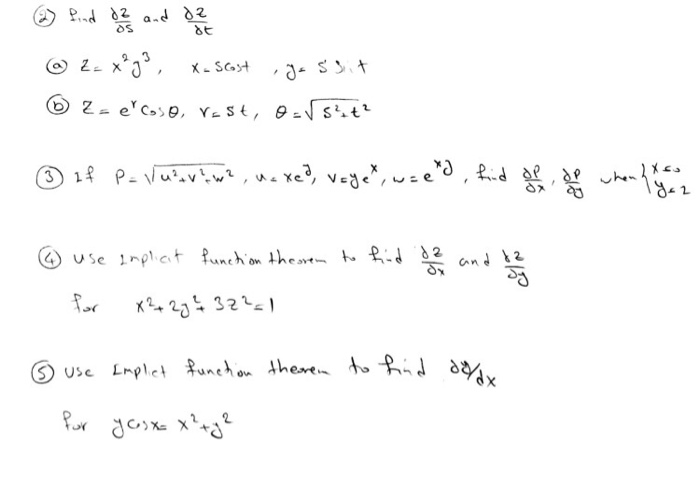 ② find ∂z/∂s and ∂z/∂t
ⓐ z = x²y³, x = s cos t, y = s sin t
ⓑ z = e^r cos θ, r = st, θ = √(s²+t²)
③ if P = √(u²+v²+w²), u = xe^y, v = ye^x, w = e^(xy), find ∂P/∂x, ∂P/∂y when { x=0 y=2
④ use implicit function theorem to find ∂z/∂x and ∂z/∂y
for x²+2y²+3z²=1
⑤ use Implct function theorem to find dy/dx
for y cos x = x²+y²